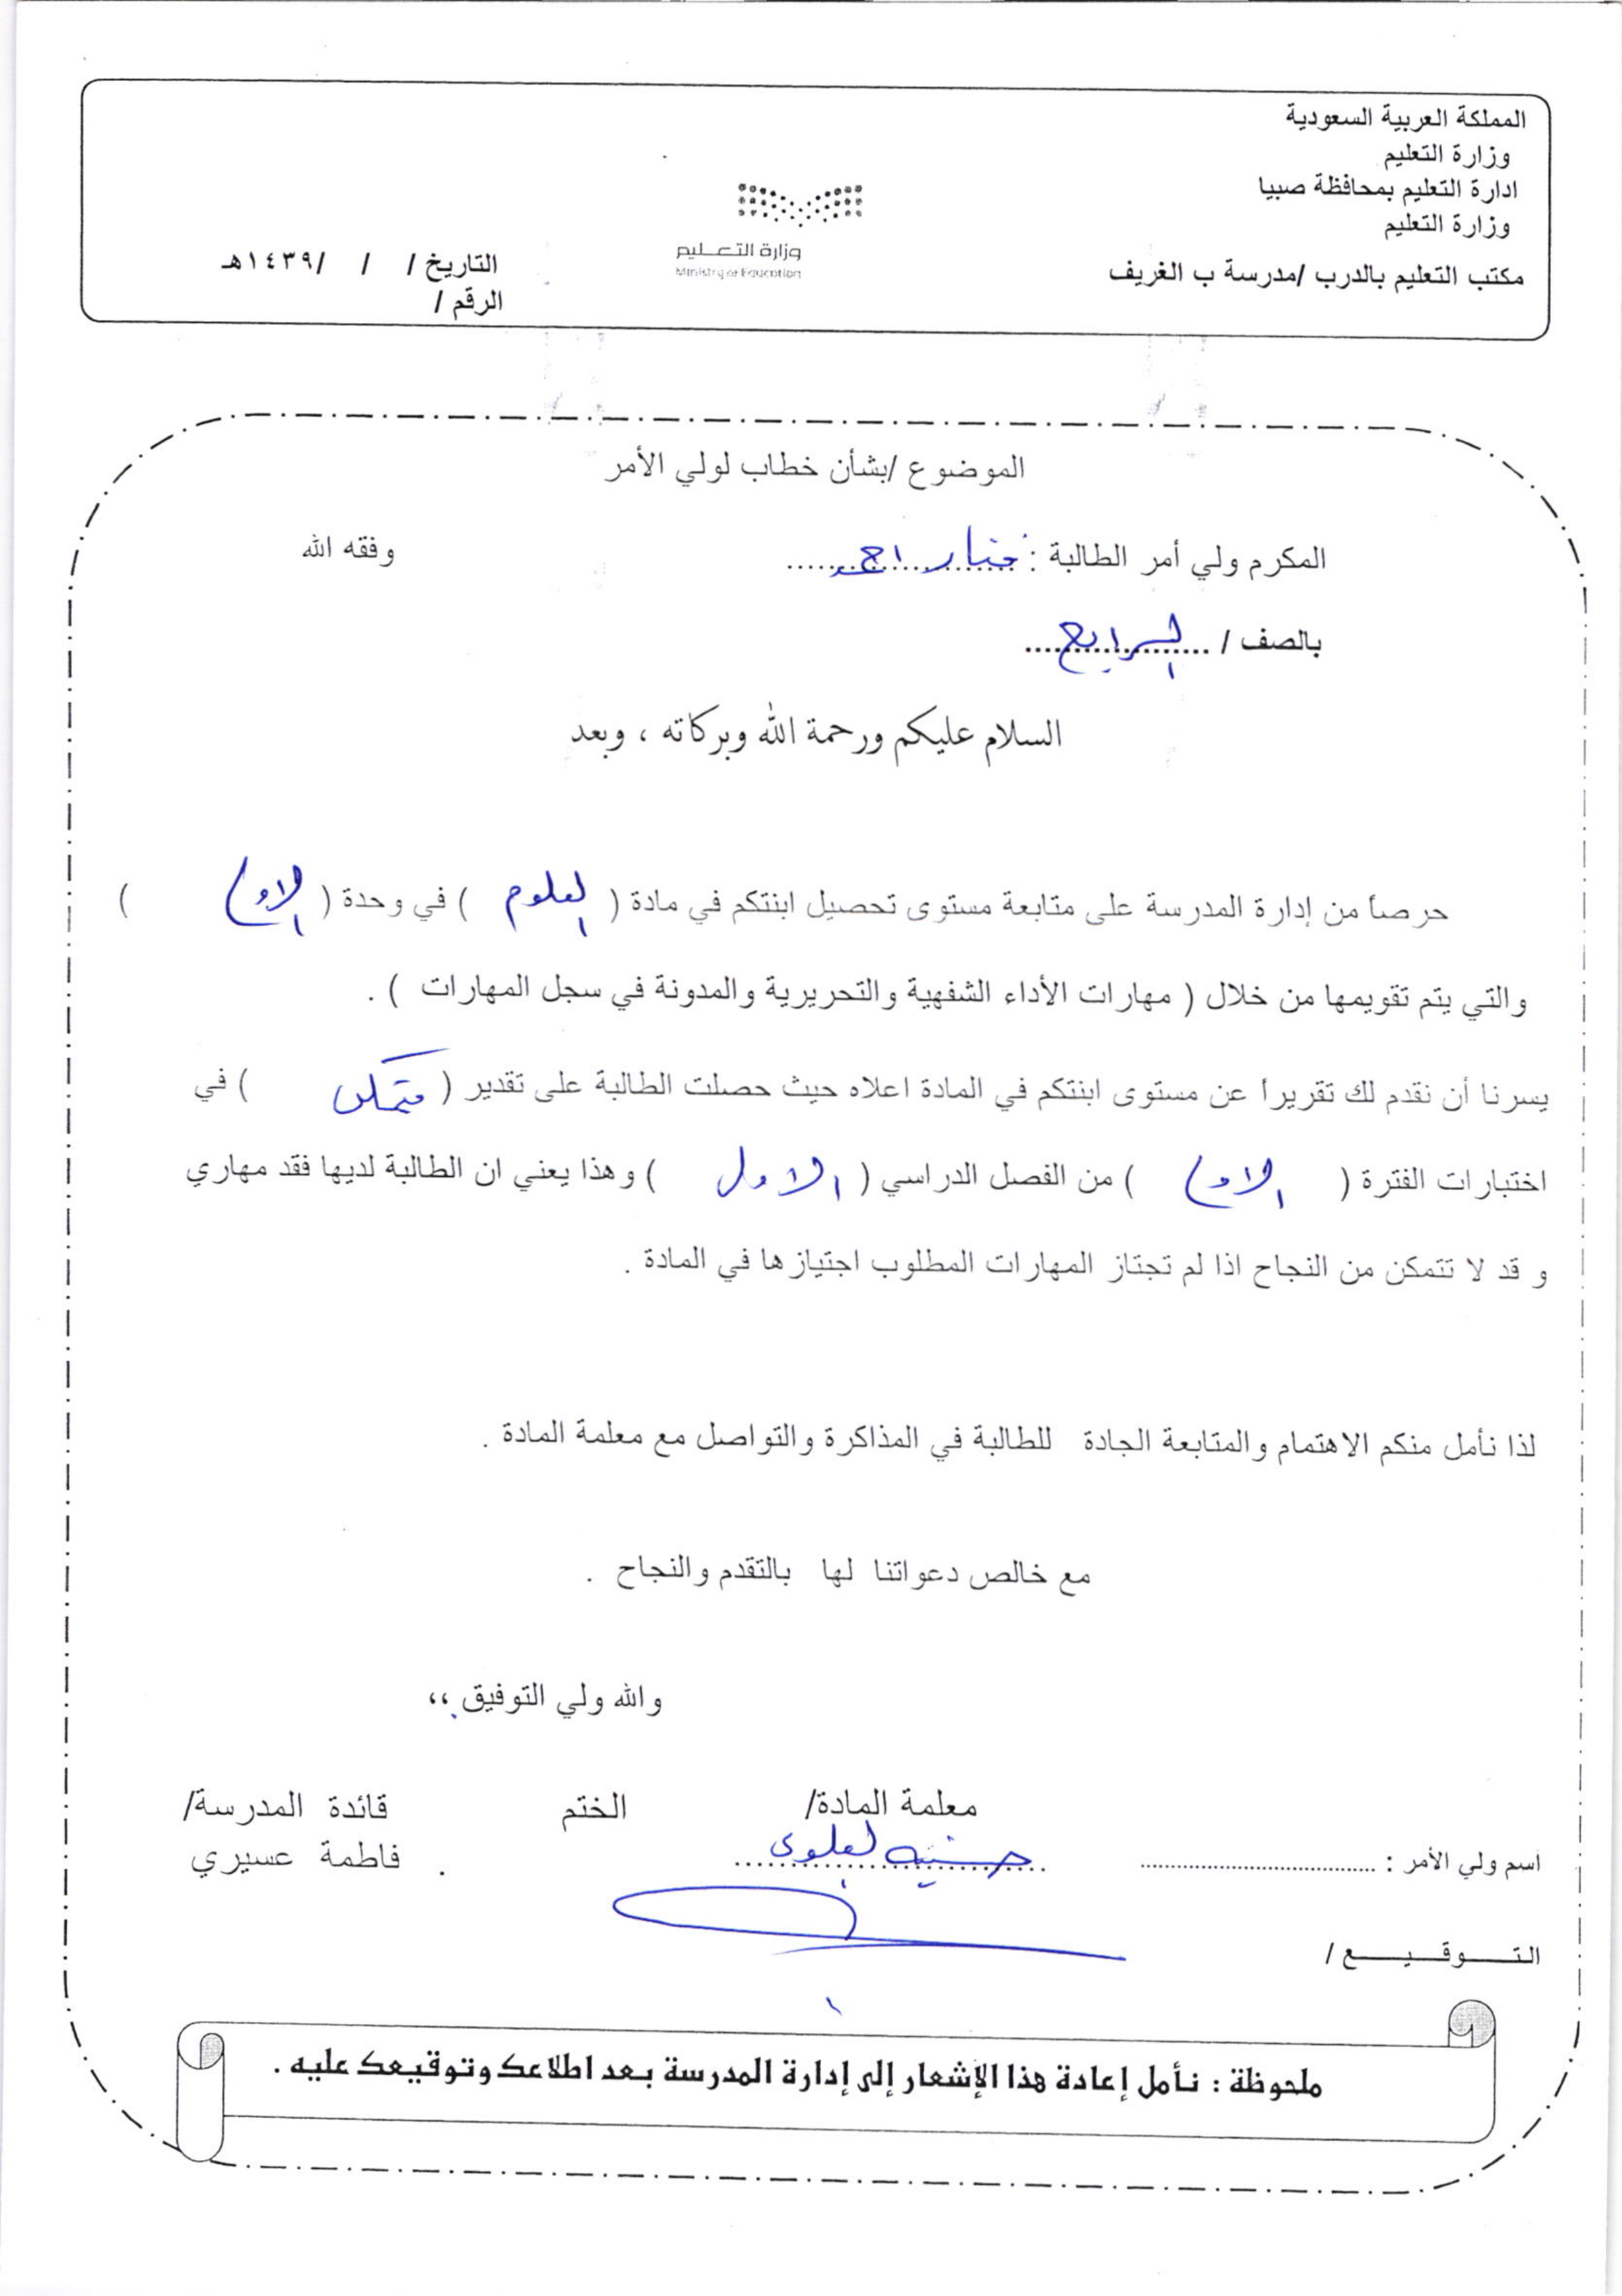 المملكة العربية السعودية
وزارة التعليم
ادارة التعليم بمحافظة صبيا
وزارة التعليم
مكتب التعليم بالدرب /مدرسة ب الغريف
وزارة التعـــليم
Ministry of Education
التاريخ / / /١٤٣٩هـ
الرقم /
الموضوع /بشأن خطاب لولي الأمر
المكرم ولي أمر الطالبة : ..................... وفقه الله
بالصف / الرابع
السلام عليكم ورحمة الله وبركاته ، وبعد
حرصاً من إدارة المدرسة على متابعة مستوى تحصيل ابنتكم في مادة ( العلوم ) في وحدة ( الاولى )
والتي يتم تقويمها من خلال ( مهارات الأداء الشفهية والتحريرية والمدونة في سجل المهارات ) .
يسرنا أن نقدم لك تقريراً عن مستوى ابنتكم في المادة اعلاه حيث حصلت الطالبة على تقدير ( متمكن ) في
اختبارات الفترة ( الاولى ) من الفصل الدراسي ( الاول ) وهذا يعني ان الطالبة لديها فقد مهاري
و قد لا تتمكن من النجاح اذا لم تجتاز المهارات المطلوب اجتيازها في المادة .
لذا نأمل منكم الاهتمام والمتابعة الجادة للطالبة في المذاكرة والتواصل مع معلمة المادة .
مع خالص دعواتنا لها بالتقدم والنجاح .
والله ولي التوفيق ،،
معلمة المادة/ الختم قائدة المدرسة/
اسم ولي الأمر : ................................ لعلوي . فاطمة عسيري
التـــــوقـــيـــــع /
ملحوظة : نأمل إعادة هذا الإشعار إلى إدارة المدرسة بعد اطلاعك وتوقيعك عليه .